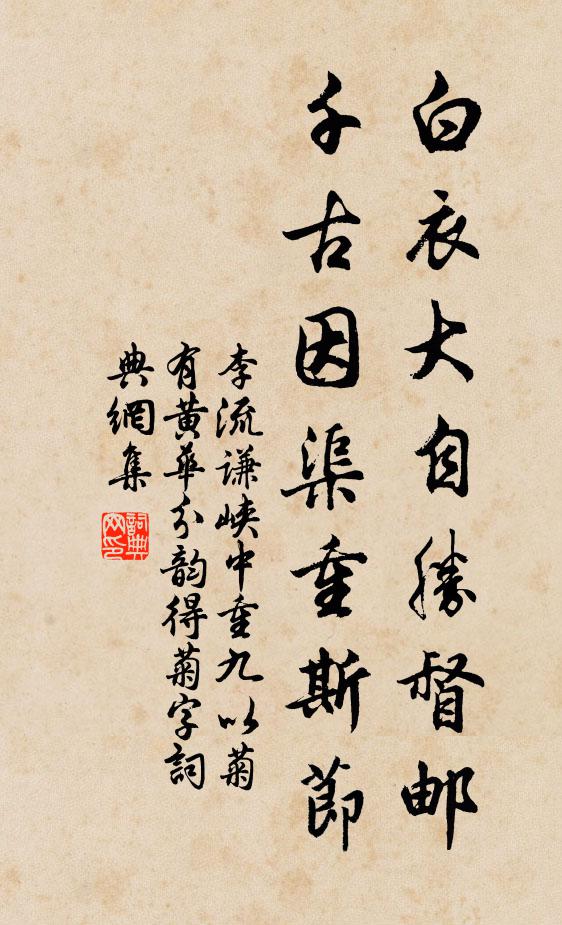 白衣大自勝督邮
千古因渠重斯節
李流謙峽中重九以菊
有黄華分韵得菊字詞
典網集
詞典网印